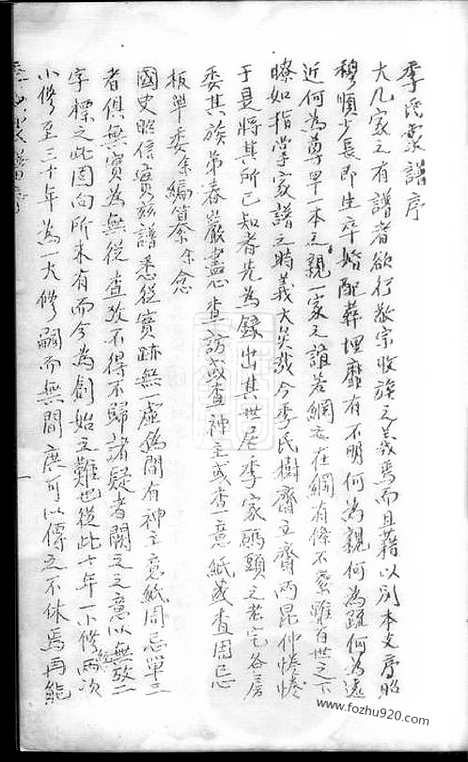 季氏家譜序
大凡家之有譜者欲行敬宗收族之義焉而且藉以別本支序昭
穆順少長即生卒婚配葬埋靡有不明何為親何為疏何為遠
近何為尊卑一本之親一家之誼若網之在綱有條不紊雖百世之下
瞭如指掌家譜之時義大矣哉今季氏樹齋立齋兩昆仲惓惓
于是將其所已知者先為錄出其世居季家碼頭之老宅各房
委其族弟春嚴盡查訪或查神主或查一意紙或查周忌
板單委余編纂余念
國史昭信實茲譜悉從實跡無一虛偽間有神主意紙周忌單三
者俱無實為無從查攷不得不歸諸疑者闕之之意以無攷二
字標之此固向所未有而今為創始之難也從此十年一小修兩次
小修至三十年為一大修嗣而無間庶可以傳之不休焉再能
季氏家譜序
一
www.fozhu920.com